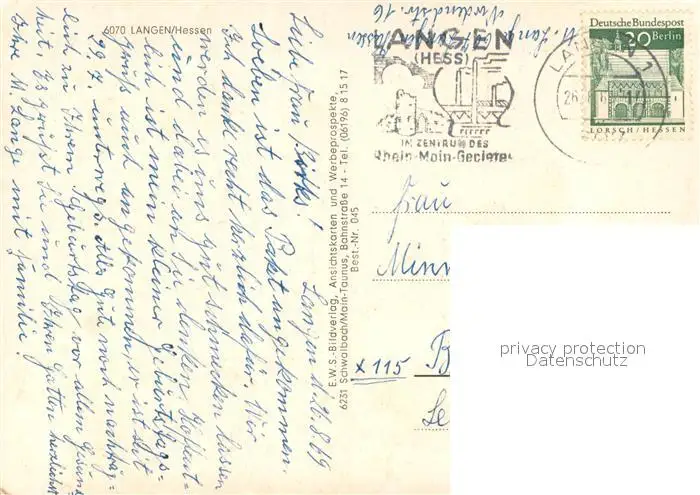 6070 LANGEN/Hessen
Langen d. 26.8.69
Liebe Frau
Soeben ist das Paket angekommen.
Ich danke recht herzlich dafür. Wir
werden es uns gut schmecken lassen
und dabei an Sie denken. Hoffent-
lich ist mein kleiner Geburtstags-
gruß und angekommen, er ist seit
29.7. unterwegs. Alles Gute noch nachträg-
lich zu Ihrem Geburtstag, vor allem Gesund-
heit. Es grüßt Sie und Ihren Gatten herzlichst
Ihre M. Lange mit Familie!
E.W.S.-Bildverlag, Ansichtskarten und Werbeprospekte,
6231 Schwalbach/Main-Taunus, Bahnstraße 14 - Tel. (06196) 8 15 17
Best.-Nr. 045
M. Lange
Langen
Nordendstr. 16
LANGEN
(HESS)
IM ZENTRUM DES
Rhein-Main-Gebietes
LANGEN 1
26.
Deutsche Bundespost
30 Berlin
LORSCH/HESSEN
Frau
Minn
x 115
B
Le
privacy protection
Datenschutz